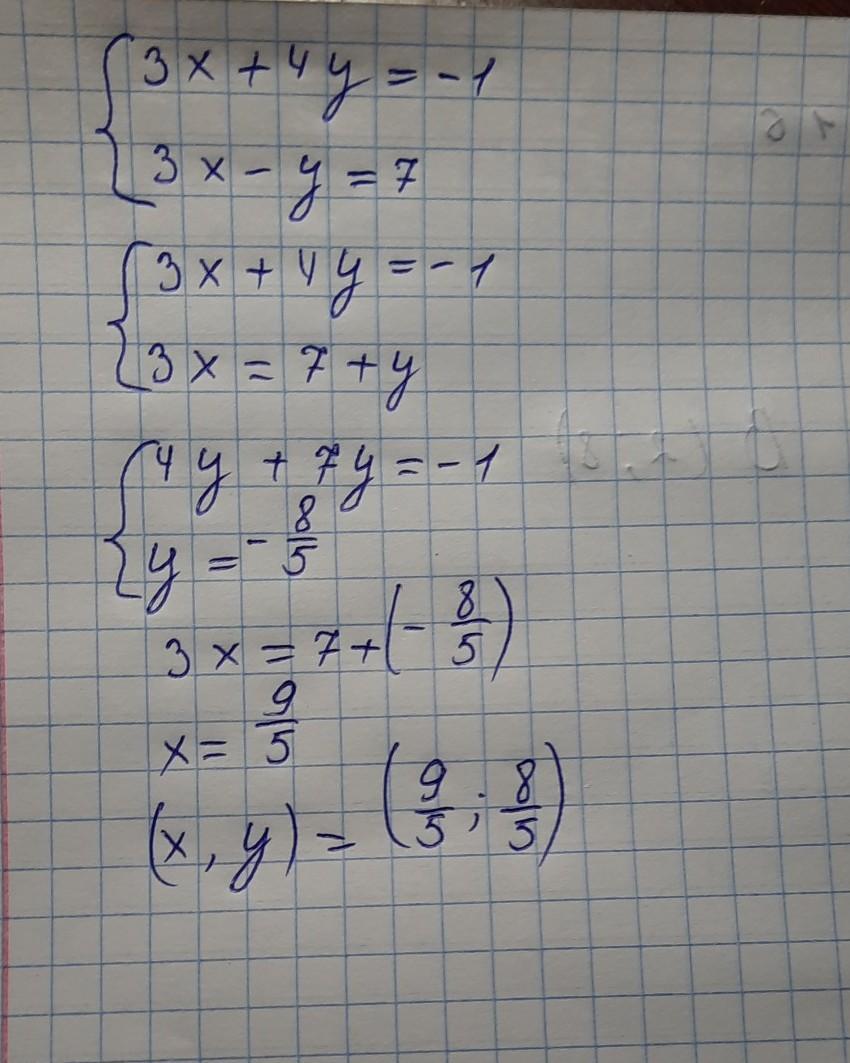 3x + 4y = -1
3x - y = 7
3x + 4y = -1
3x = 7 + y
4y + 7y = -1
y = - 8/5
3x = 7 + (- 8/5)
x = 9/5
(x, y) = (9/5 ; 8/5)